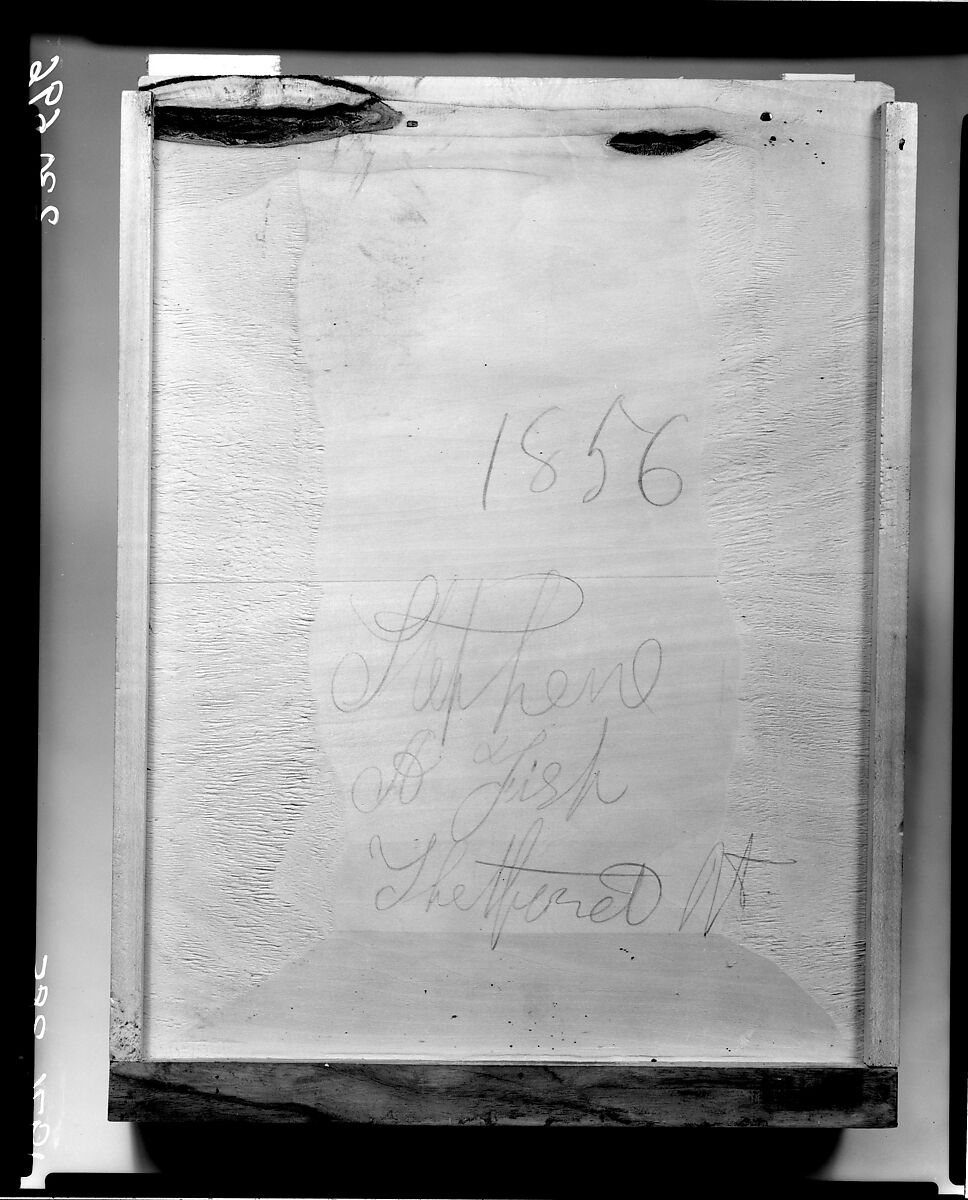 1856
Stephen
A Fish
Thetford Vt